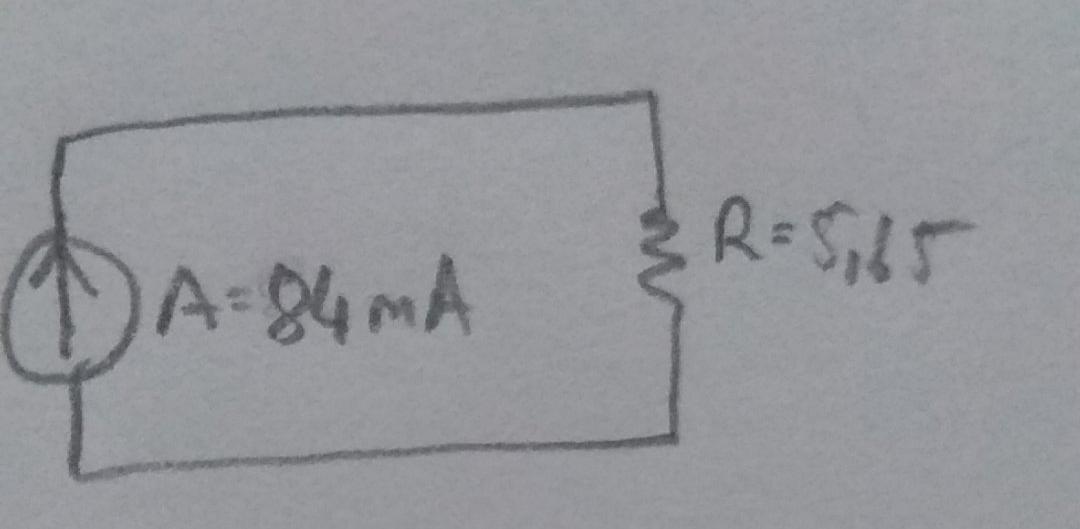 A=84mA
R=5,65